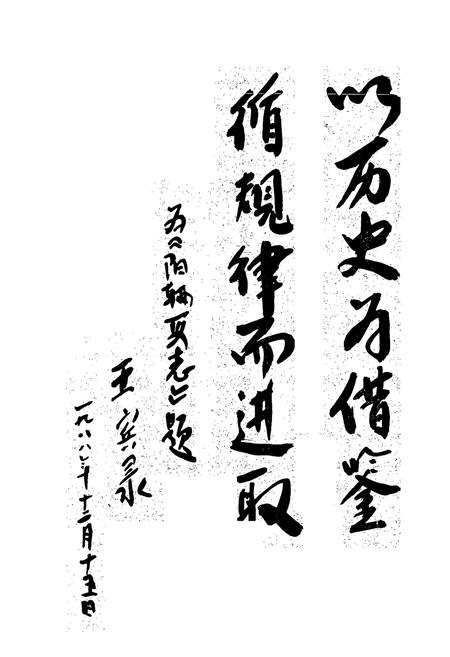 以历史为借鉴
循规律而进取
为《阳朔县志》题
王
一九八八年十二月十五日